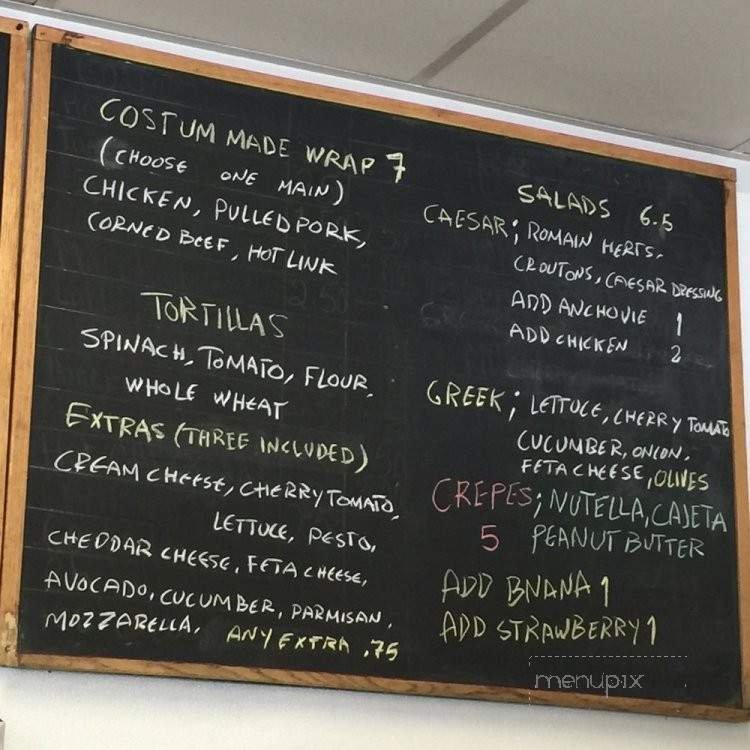 COSTUM MADE WRAP 7
(CHOOSE ONE MAIN)
CHICKEN, PULLED PORK,
CORNED BEEF, HOT LINK
TORTILLAS
SPINACH, TOMATO, FLOUR,
WHOLE WHEAT
EXTRAS (THREE INCLUDED)
CREAM CHEESE, CHERRY TOMATO,
LETTUCE, PESTO,
CHEDDAR CHEESE, FETA CHEESE,
AVOCADO, CUCUMBER, PARMISAN,
MOZZARELLA, ANY EXTRA .75
SALADS 6.5
CAESAR; ROMAIN HERTS,
CROUTONS, CAESAR DRESSING
ADD ANCHOVIE 1
ADD CHICKEN 2
GREEK; LETTUCE, CHERRY TOMATO
CUCUMBER, ONION,
FETA CHEESE, OLIVES
CREPES; NUTELLA, CAJETA
5 PEANUT BUTTER
ADD BNANA 1
ADD STRAWBERRY 1
menupix